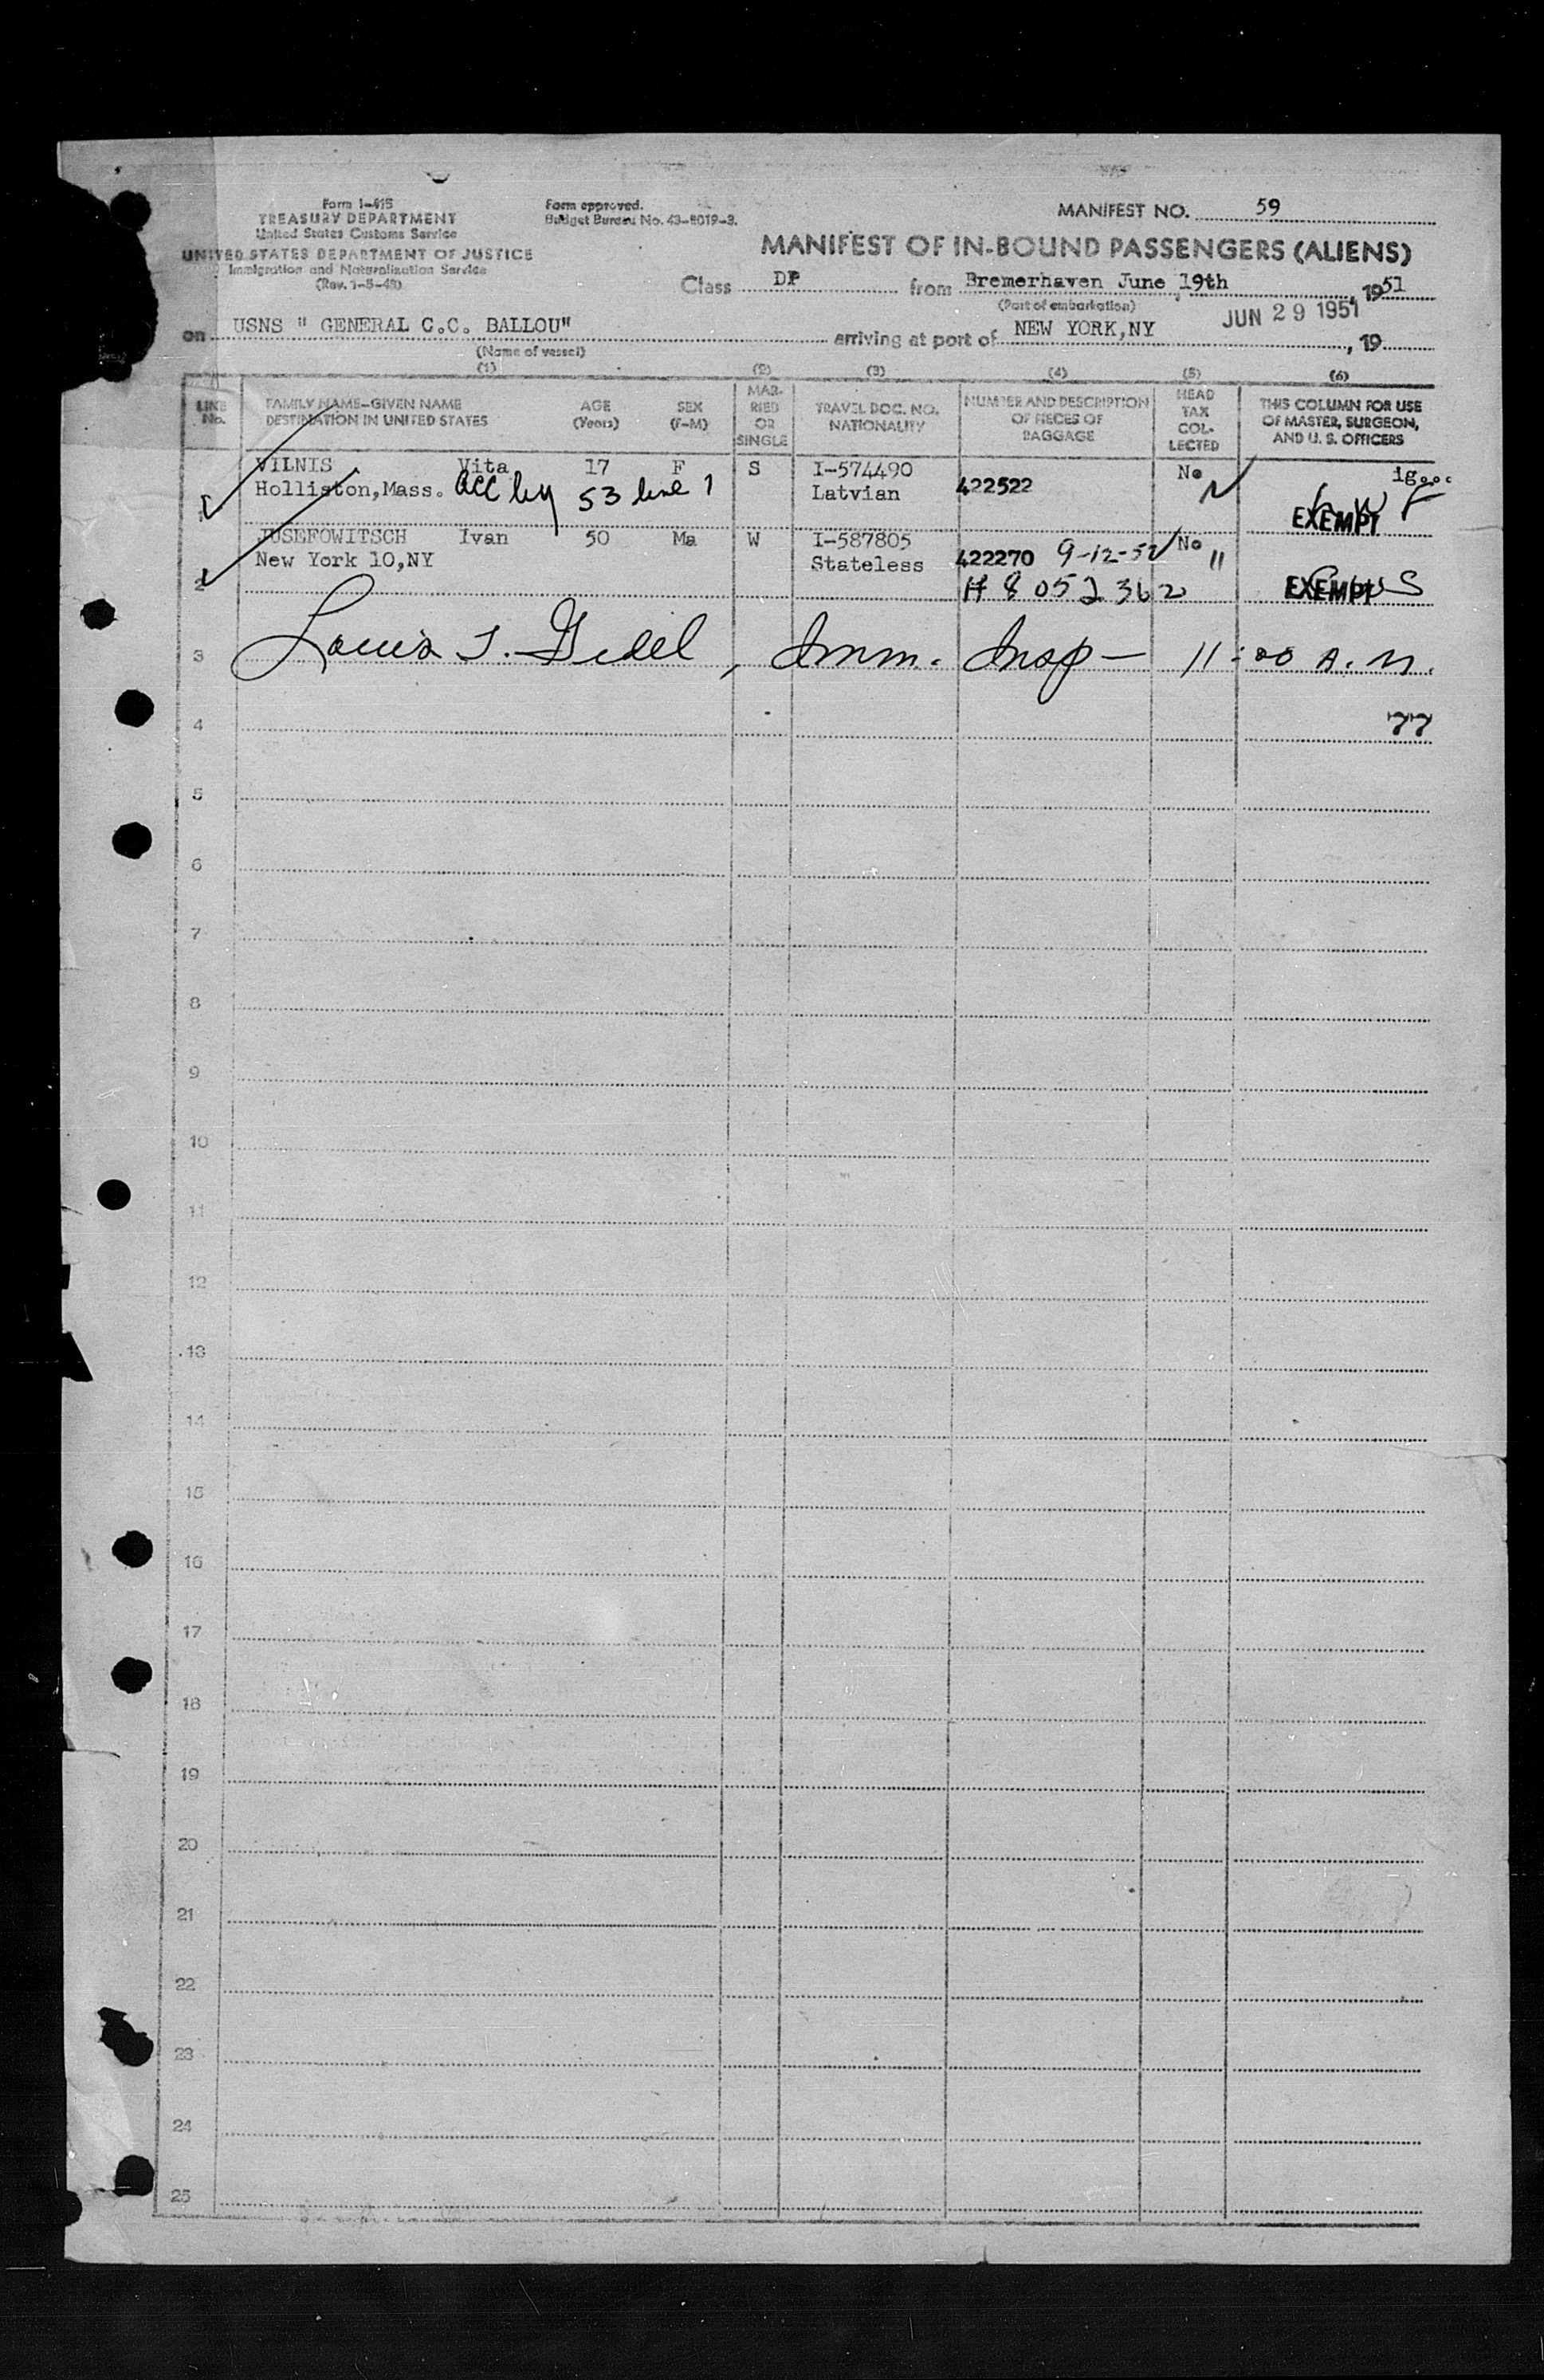 Form I-415
TREASURY DEPARTMENT
United States Customs Service
UNITED STATES DEPARTMENT OF JUSTICE
Immigration and Naturalization Service
(Rev. 1-5-48)
Form approved.
Budget Bureau No. 43-R019-3.
MANIFEST NO. 59
MANIFEST OF IN-BOUND PASSENGERS (ALIENS)
Class DP from Bremerhaven June 19th, 1951
(Port of embarkation)
on USNS " GENERAL C.C. BALLOU" arriving at port of NEW YORK,NY JUN 29 1951, 19
(Name of vessel)
(1) (2) (3) (4) (5) (6)
LINE No. FAMILY NAME-GIVEN NAME DESTINATION IN UNITED STATES AGE (Years) SEX (F-M) MARRIED OR SINGLE TRAVEL DOC. NO. NATIONALITY NUMBER AND DESCRIPTION OF PIECES OF BAGGAGE HEAD TAX COLLECTED THIS COLUMN FOR USE OF MASTER, SURGEON, AND U. S. OFFICERS
VILNIS Vita 17 F S I-574490 No
Holliston,Mass. acc by 53 line 1 Latvian 422522
1 EXEMPT
JUSEFOWITSCH Ivan 50 Ma W I-587805 No
New York 10,NY Stateless 422270 9-12-52 "
2 # 8052362 EXEMPT
3 Imm. Insp - 11:00 A.M.
4 77
5
6
7
8
9
10
11
12
13
14
15
16
17
18
19
20
21
22
23
24
25